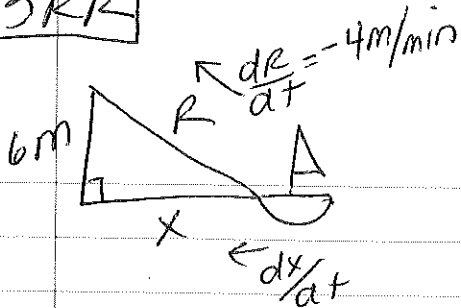 dR/dt = -4m/min
R
6m
X
dx/dt